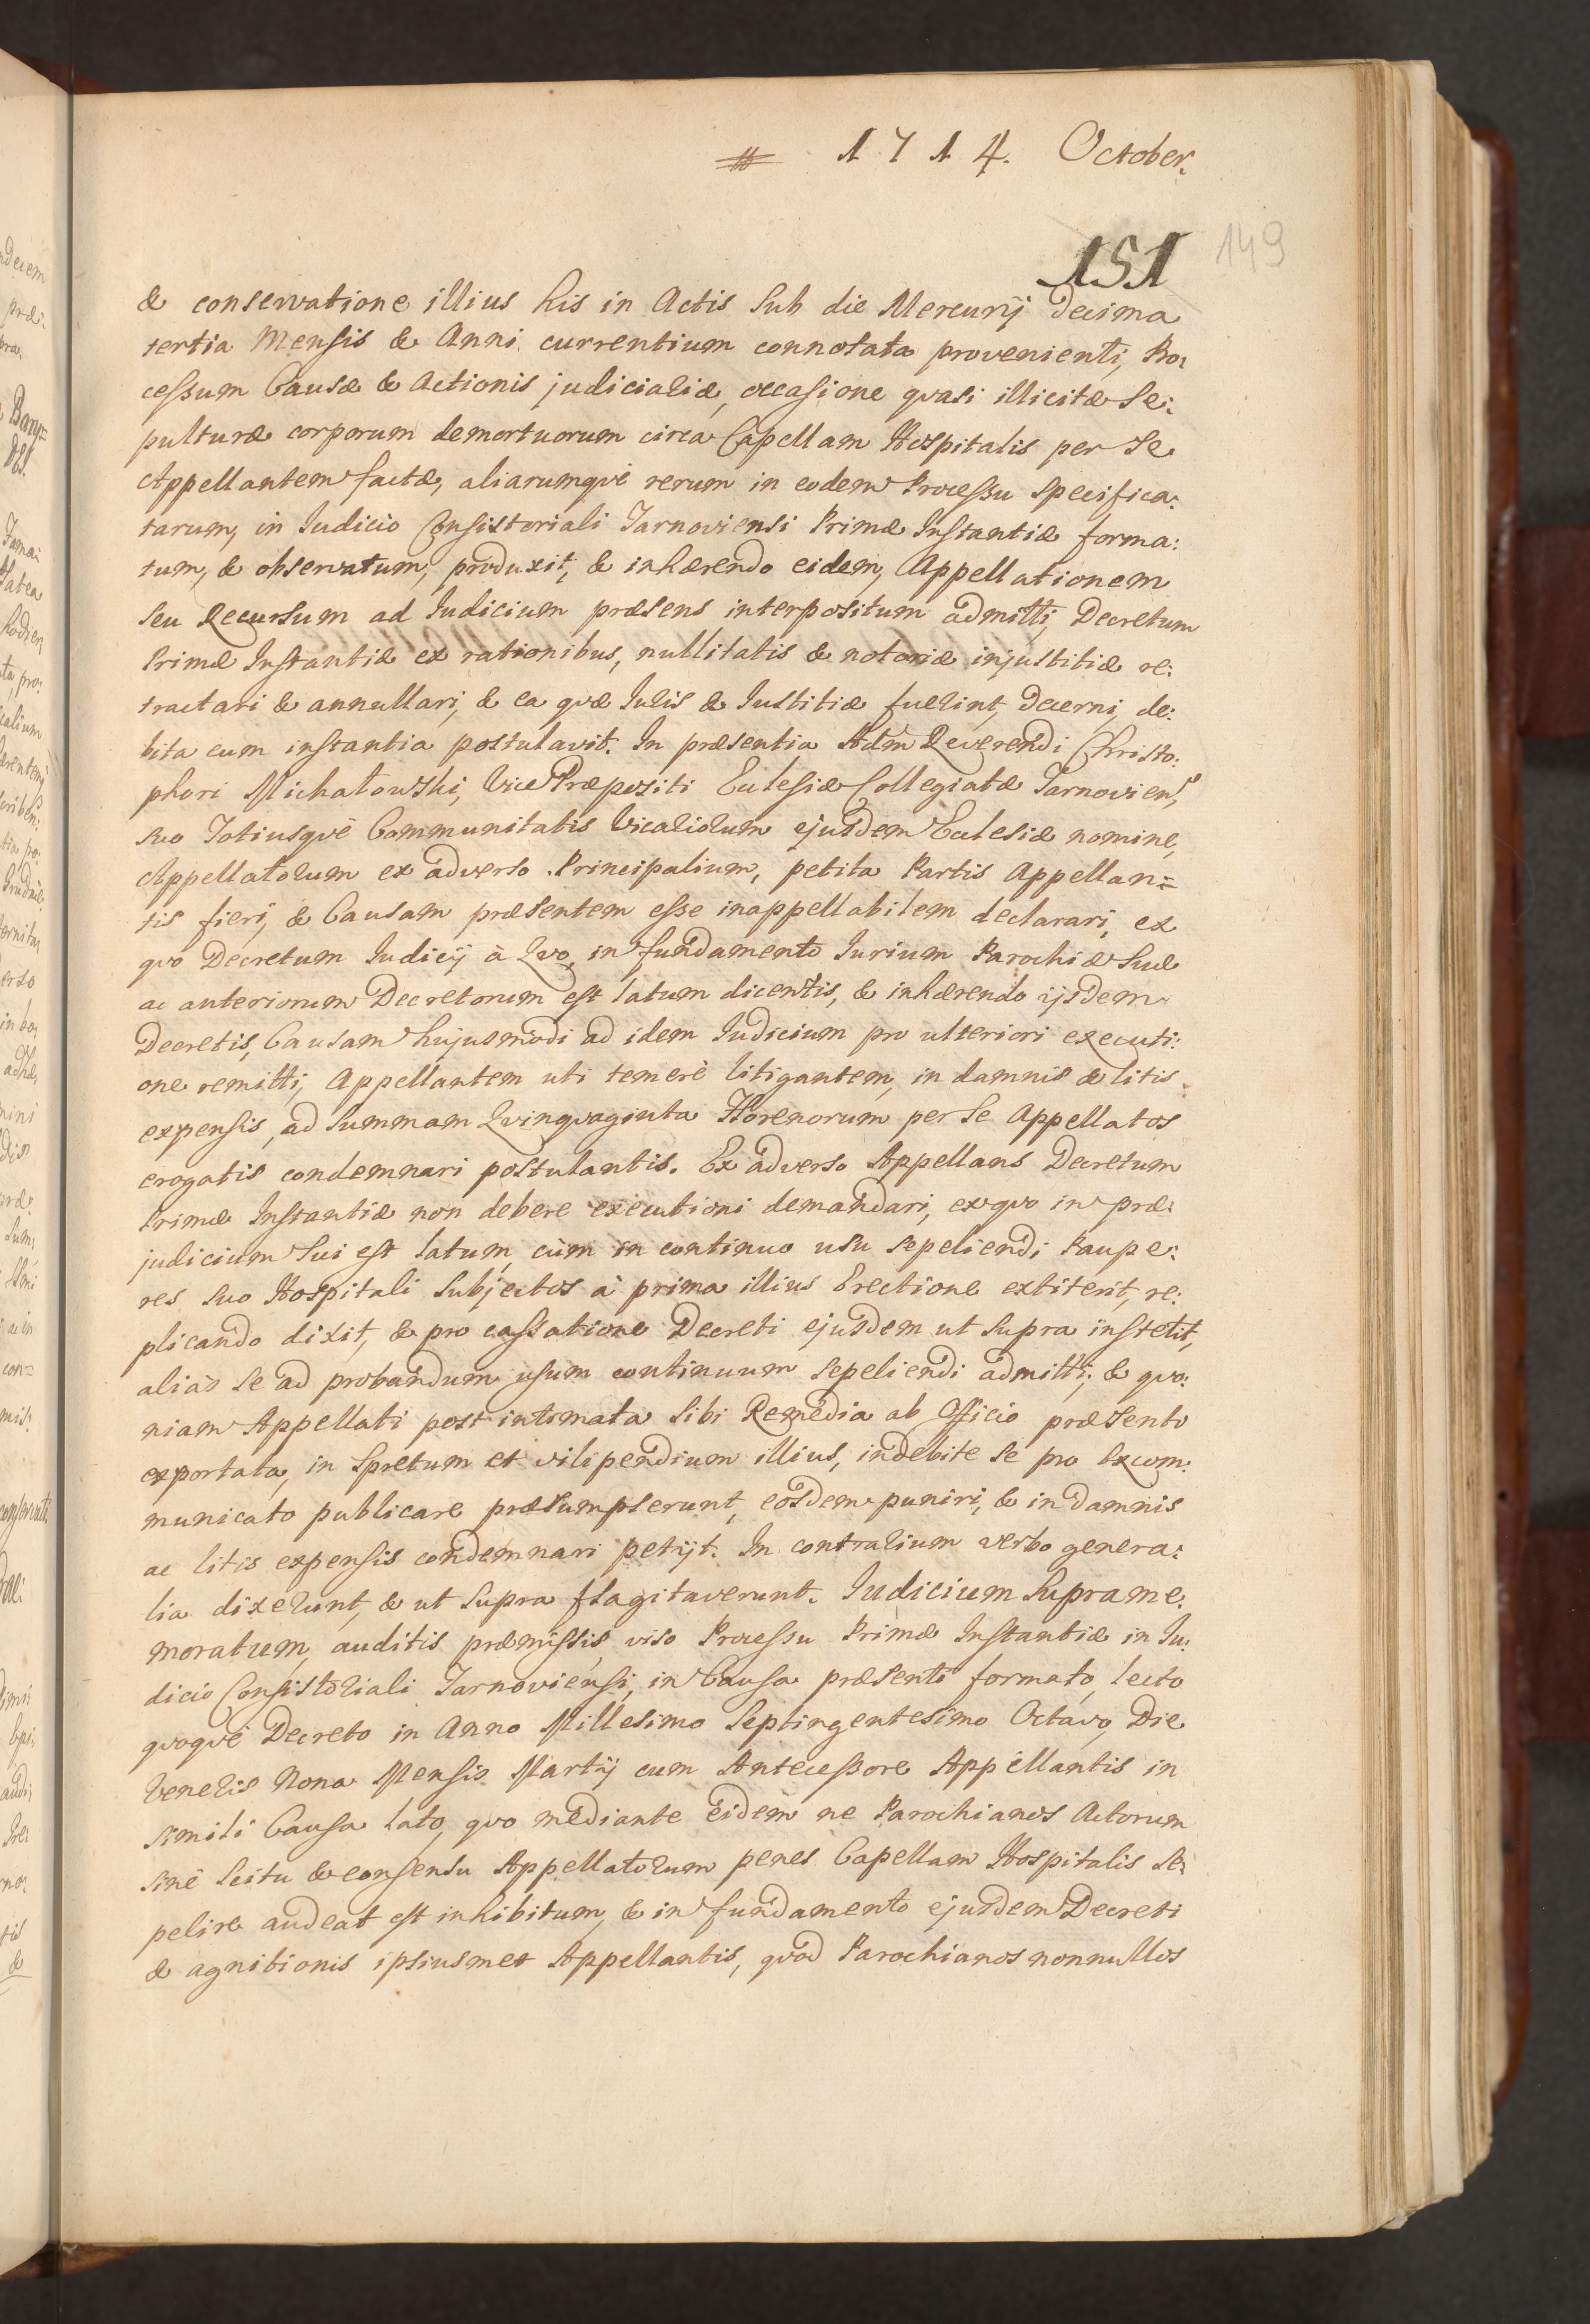 1714. October.
151 149
& conservatione illius his in Actis sub die Mercurij decima
tertia Mensis & Anni currentium connotata provenienti, Pro:
cessum Causæ & Actionis judicialiæ, occasione quasi illicitæ Se:
pulturæ corporum demortuorum circa Capellam Hospitalis per se
Appellantem factæ, aliarumquè rerum in eodem Processu specifica:
tarum, in Iudicio Consistoriali Tarnoviensi Primæ Instantiæ forma:
tum, & observatum, produxit, & inhærendo eidem, Appellationem
seu Recursum ad Iudicium præsens interpositum admitti, Decretum
Primæ Instantiæ ex rationibus, nullitatis & notoriæ injustitiæ re:
tractari & annullari, & ea quæ Iuris & Iustitiæ fuerint, decerni, de:
bita cum instantia postulavit. In præsentia Adm Reverendi Christo:
phori Michałowski, Vice Præpositi Ecclesiæ Collegiatæ Tarnovien,
suo Totiusquè Communitatis Vicariorum ejusdem Ecclesiæ nomine,
Appellatorum ex adverso Principalium, petita Partis Appellan=
tis fieri, & Causam præsentem esse inappellabilem declarari, ex
quo Decretum Iudicij à Quo, in fundamento Iurium Parochiæ suæ
ac anteriorum Decretorum est latum dicentis, & inhærendo ijsdem
Decretis, Causam hujusmodi ad idem Iudicium pro ulteriori executi:
one remitti, Appellantem uti temerè litigantem, in damnis & litis
expensis, ad summam Quinquaginta Florenorum per se Appellatos
erogatis condemnari postulantis. Ex adverso Appellans Decretum
Primæ Instantiæ non debere executioni demandari, ex quo in præ:
judicium sui est latum, cùm in continuo usu sepeliendi Paupe:
res suo Hospitali subjectos à prima illius Erectione extiterit, re:
plicando dixit, & pro cassatione Decreti ejusdem ut supra institit,
alias se ad probandum usum continuum sepeliendi admitti; & quo:
niam Appellati post intimata sibi Remedia ab Officio præsenti
exportata, in spretum et vilipendium illius, indebite se pro Excom:
municato publicare præsumpserunt, eosdem puniri, & in damnis
ac litis expensis condemnari petijt. In contrarium verbo genera:
lia dixerunt, & ut supra flagitaverunt. Iudicium suprame:
moratum, auditis præmissis, viso Processu Primæ Instantiæ in Iu:
dicio Consistoriali Tarnoviensi, in Causa præsenti formato, lecto
quoquè Decreto in Anno Millesimo Septingentesimo Octavo, Die
Veneris Nona Mensis Martij cum Antecessore Appellantis in
simili Causa lato, quo mediante eidem ne Parochianos Actorum
sinè scitu & consensu Appellatorum penes Capellam Hospitalis se:
pelire audeat est inhibitum, & in fundamento ejusdem Decreti
& agnitionis ipsiusmet Appellantis, quod Parochianos nonnullos